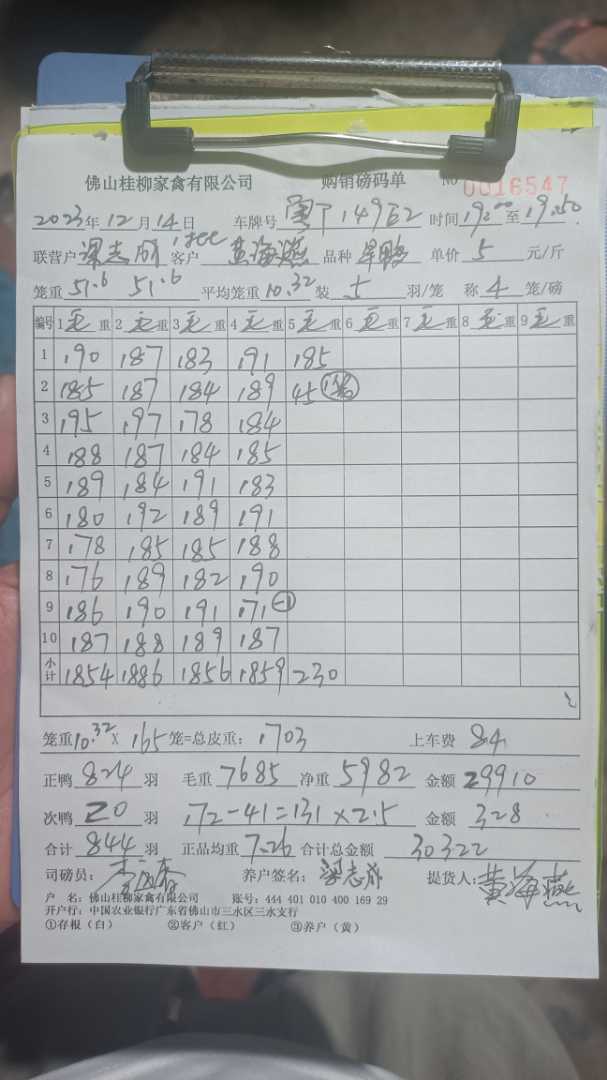 佛山桂柳家禽有限公司 购销磅码单 No 0016547
2023年 12月 14日 车牌号 粤T149E2 时间 19:00 至 19:50
联营户 梁志成 客户 黄海燕 品种 单价 5 元/斤
笼重 51.6 51.6 平均笼重 10.32 装 5 羽/笼 称 4 笼/磅
编号 1 毛 重 2 毛 重 3 毛 重 4 毛 重 5 毛 重 6 毛 重 7 毛 重 8 毛 重 9 毛 重
1 190 187 183 191 185
2 185 187 184 189 45
3 195 197 178 184
4 188 187 184 185
5 189 184 191 183
6 180 192 189 191
7 178 185 185 188
8 176 189 182 190
9 186 190 191 171 -1
10 187 188 189 187
小计 1854 1886 1856 1859 230
笼重 10.32 × 165 笼=总皮重: 1703 上车费 84
正鸭 824 羽 毛重 7685 净重 5982 金额 29910
次鸭 20 羽 172-41=131×2.5 金额 328
合计 844 羽 正品均重 7.26 合计总金额 30322
司磅员: 养户签名: 梁志成 提货人: 黄海燕
户 名: 佛山桂柳家禽有限公司 账号: 444 401 010 400 169 29
开户行: 中国农业银行广东省佛山市三水区三水支行
①存根（白） ②客户（红） ③养户（黄）